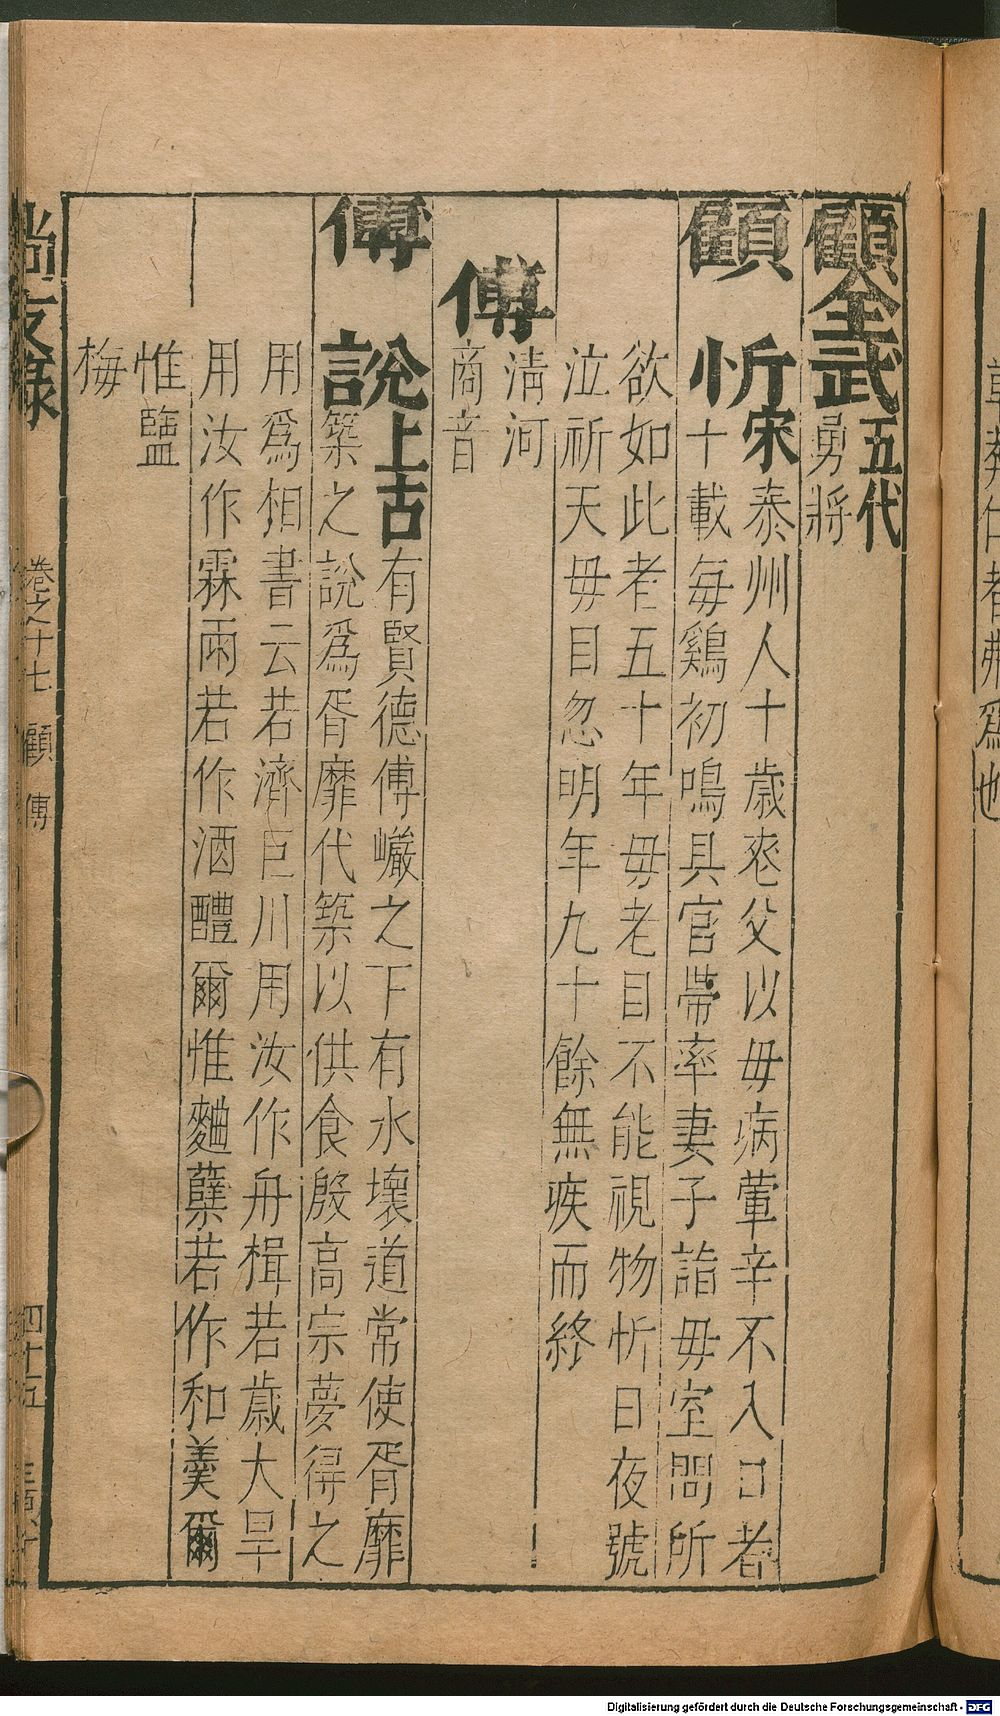 顧全武五代
勇將
顧　忻宋泰州人十歲䘮父以毋病葷辛不入口者
十載每鷄初鳴具官帶率妻子詣毋室問所
欲如此者五十年毋老目不能視物忻日夜號
泣祈天毋目忽明年九十餘無疾而終
清河
傅
商音
傅　說上古有賢德傅巗之下有水壞道常使胥靡
築之說爲胥靡代築以供食殷高宗夢得之
用爲相書云若濟巨川用汝作舟楫若歲大旱
用汝作霖雨若作酒醴爾惟麯糵若作和羹爾
惟鹽
梅
尚友錄
卷之十七　顧　傅
四十五
Digitalisierung gefördert durch die Deutsche Forschungsgemeinschaft - DFG